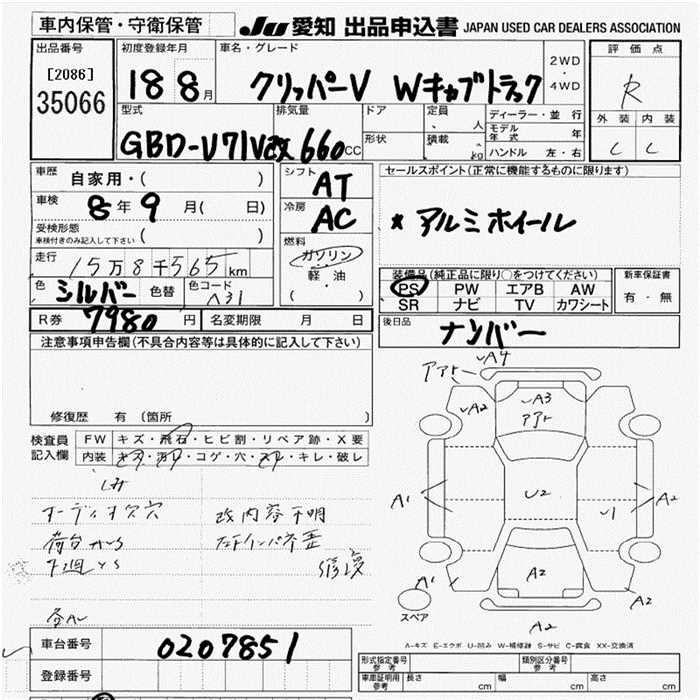 車内保管・守衛保管
JU 愛知 出品申込書 JAPAN USED CAR DEALERS ASSOCIATION
出品番号
[2086]
35066
初度登録年月
18 8月
車名・グレード
クリッパーV Wキャブトラック
2WD
・
4WD
評価点
R
外装 内装
C C
型式
GBD-V71V改
排気量
660cc
ドア
形状
定員 人
積載 kg
ディーラー・並行
モデル年式 年
ハンドル 左・右
車歴
自家用・( )
車検
8年9月( 日)
受検形態
車検付きのみ記入して下さい ( )
走行
15万8千565km
色 シルバー 色替 色コード
シフト
AT
冷房
AC
燃料
ガソリン
軽・油
( )
セールスポイント(正常に機能するものに限ります)
* アルミホイール
装備品(純正品に限り○をつけてください)
PS PW エアB AW
SR ナビ TV カワシート
新車保証書
有・無
R券 7980円 名変期限 月 日
後日品
ナンバー
注意事項申告欄(不具合内容等は具体的に記入して下さい)
修復歴 有(箇所 )
検査員
記入欄
FW キズ・飛石・ヒビ割・リペア跡・X要
内装 キズ・汚レ・コゲ・穴・スレ・キレ・破レ
オーディオ欠穴
改内容不明
荷台
下廻
修復
アアト A4
A2
A3
アアト
A1
U2
A2
A1
A2
A2
A2
スペア
A-キズ E-エクボ U-凹み W-補修跡 S-サビ C-腐食 XX-交換済
車台番号 0207851
登録番号
形式指定番号
参考
類別区分番号
参考
車庫証明用
参考
長さ cm 幅 cm 高さ cm